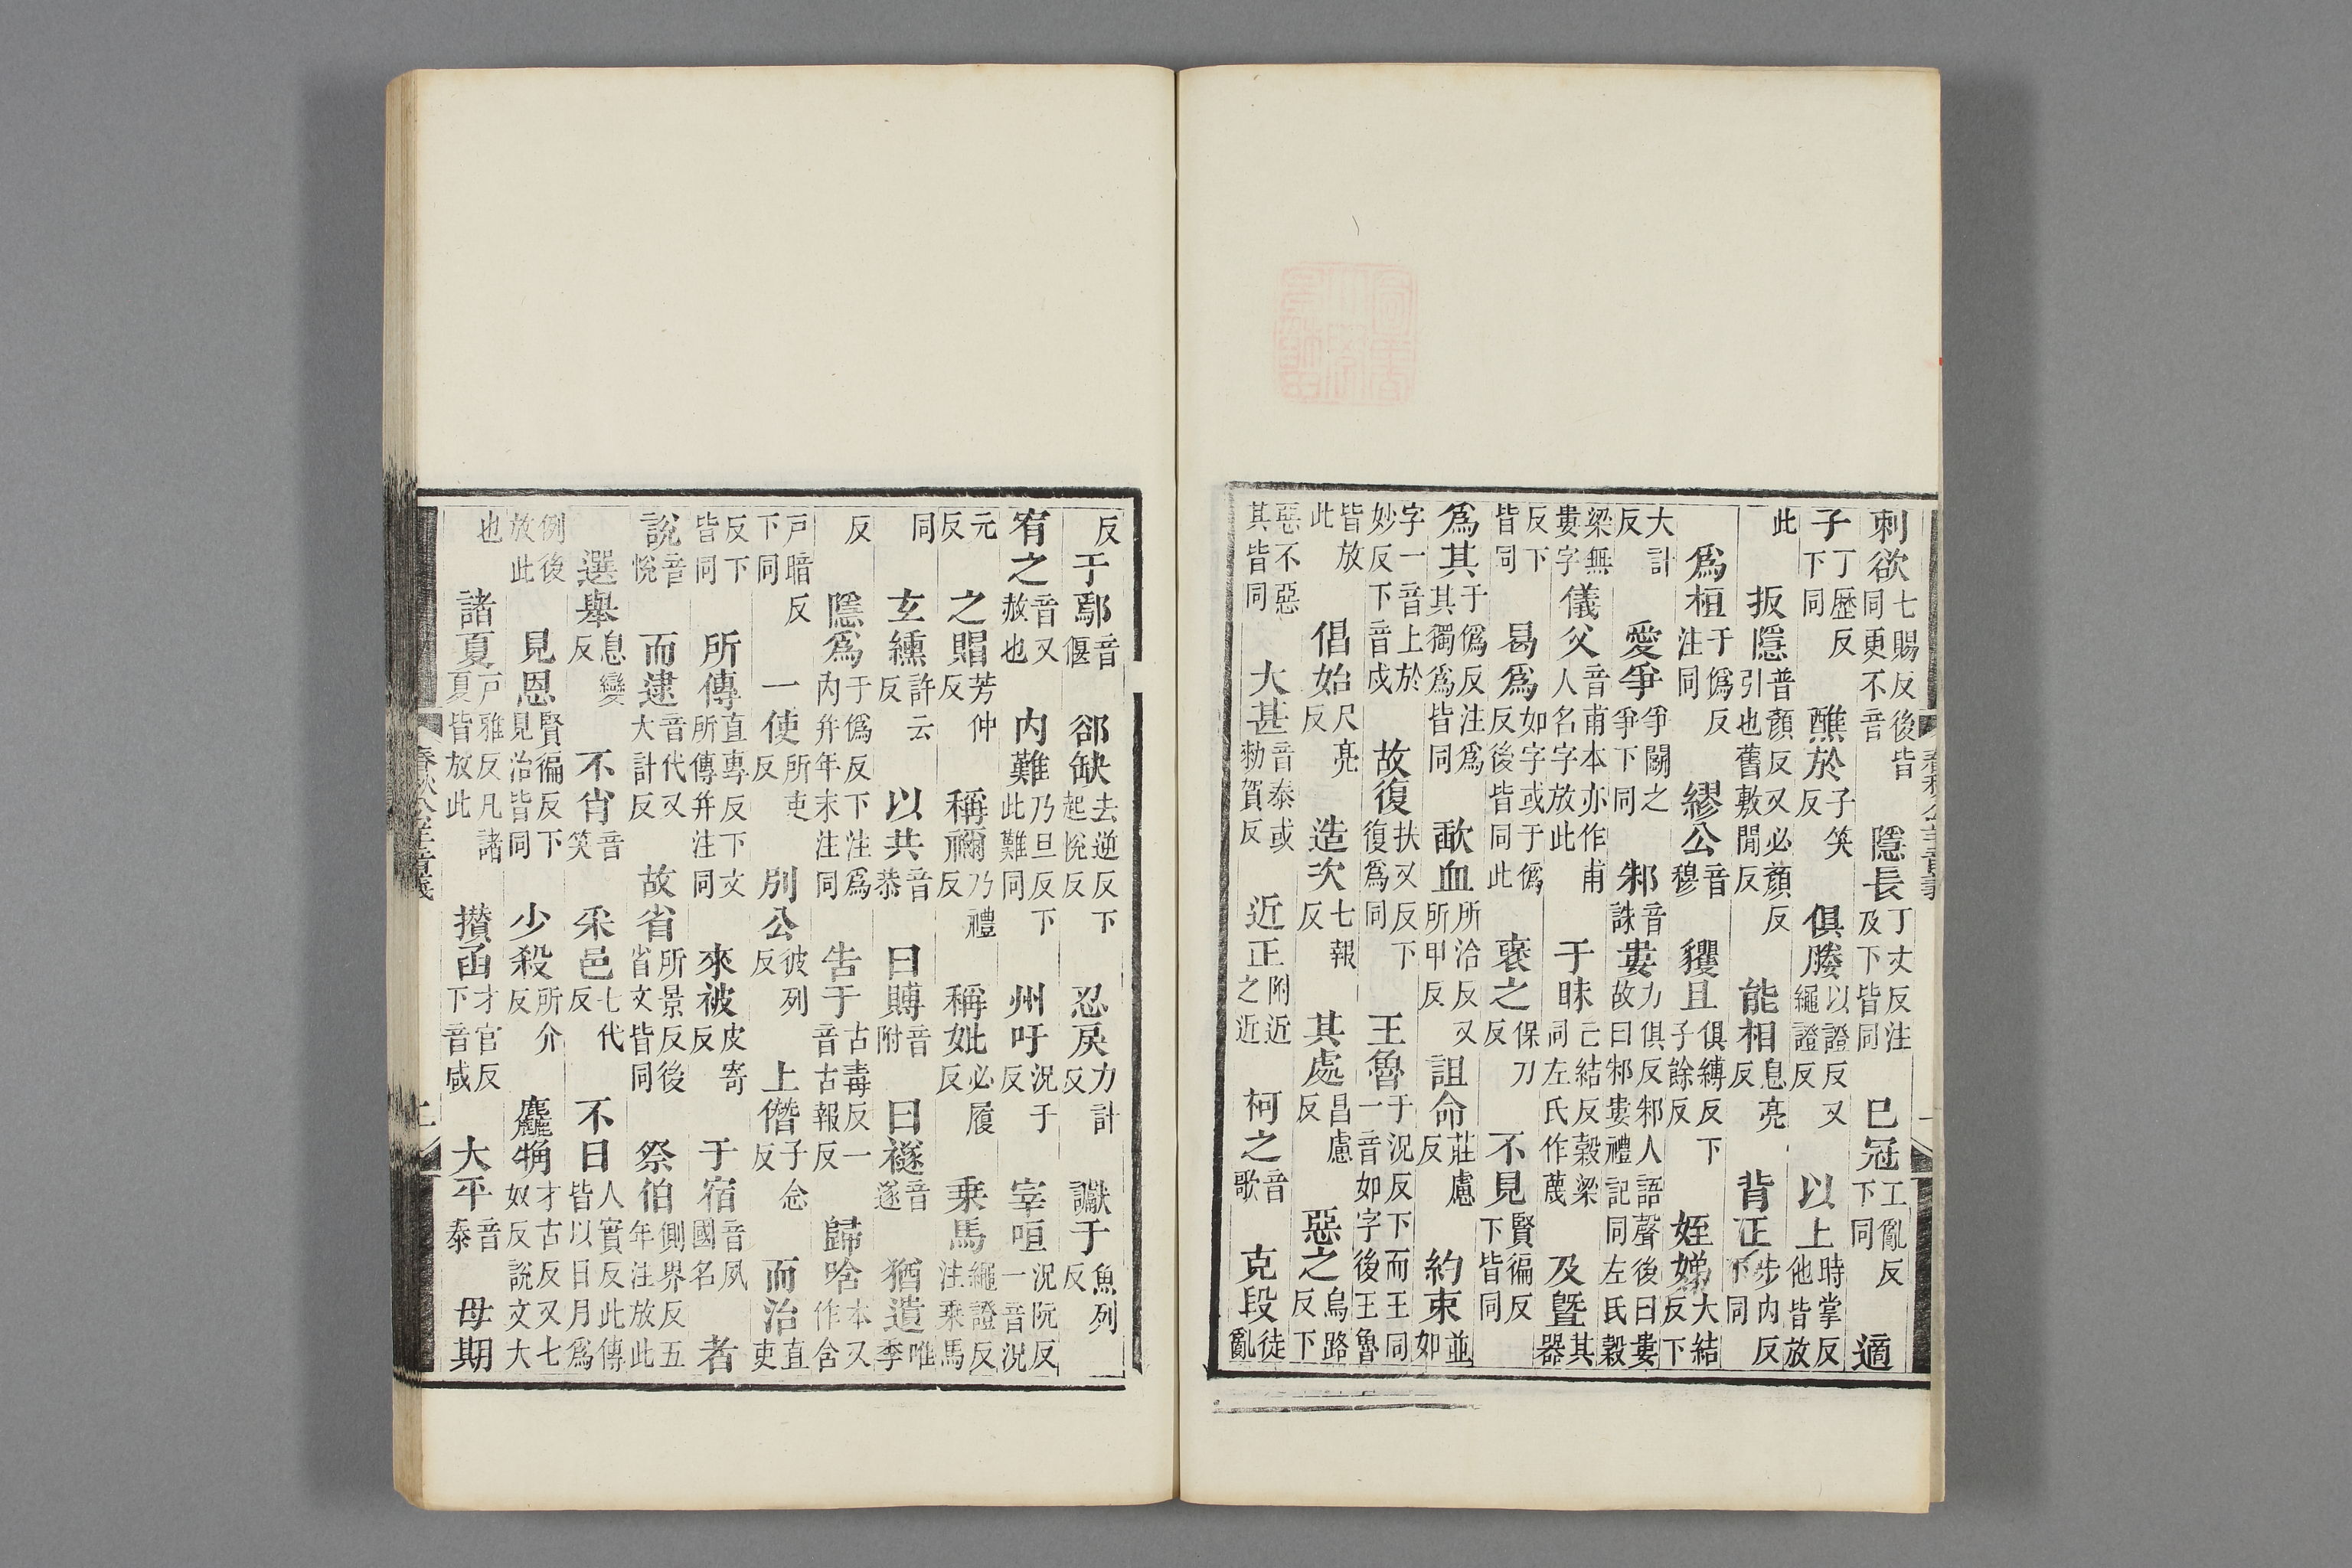 刺欲七賜反後皆同更不音隱長丁丈反注及下皆同巳冠工亂反下同適
子丁歷反下同醮於子笑反俱媵以證反又繩證反以上時掌反他皆放
此扳隱普顏反又必顏反引也舊敷閒反能相息亮反背正步內反下同
爲桓于僞反注同繆公音穆玃且俱縛反下子餘反姪娣大結反下
大計反愛爭爭鬬之爭下同邾音誅婁力俱反邾人語聲後曰婁故曰邾婁禮記同左氏穀
梁無婁字儀父音甫本亦作甫人名字放此于眛亡結反穀梁同左氏作蔑及暨其器
反下皆同曷爲如字或于僞反後皆同此襃之保刀反不見賢徧反下皆同
爲其于僞反注爲其獨爲皆同歃血所洽反又所甲反詛命莊慮反約束並如
字一音上於妙反下音戍故復扶又反下復爲同王魯于況反下而王同一音如字後王魯
皆放此倡始尺亮反造次七報反其處昌慮反惡之烏路反下
惡不惡其皆同大甚音泰或勑賀反近正附近之近柯之音歌克段徒亂
反于鄢音偃郤缺去逆反下起悅反忍戾力計反讞于魚列反
宥之音又赦也內難乃旦反下此難同州吁況于反宰咺況阮反一音況
元反之賵芳仲反稱禰乃禮反稱妣必履反乘馬繩證反注乘馬
同玄纁許云反以共音恭曰賻音附曰襚音遂猶遺唯季
反隱爲于僞反下注爲內幷年末注同告于古毒反一音古報反歸唅本又作含
戶暗反下同一使所吏反別公彼列反上僭子念反而治直吏
反下皆同所傳直專反下文所傳幷注同來被皮寄反于宿音夙國名者
說音悅而逮音代又大計反故省所景反後省文皆同祭伯側界反五年注放此
選舉息變反不肖音笑采邑七代反不日人實反此傳皆以日月爲
例後放此見恩賢徧反下見治皆同少殺所介反麤觕才古反又七奴反說文大
也諸夏戶雅反凡諸夏皆放此攢函才官反下音咸大平音泰母期